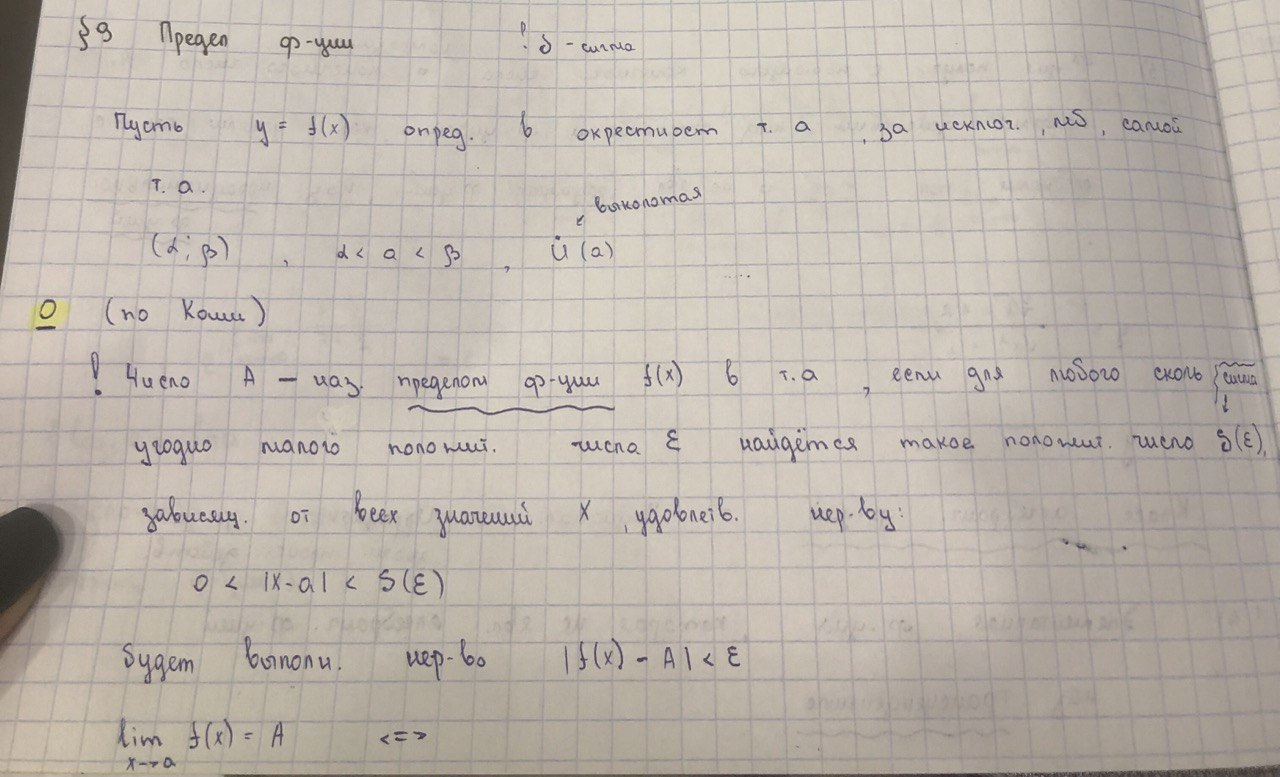 §9 Предел ф-ции ! δ - сигма
Пусть y = f(x) опред. в окрестност т. a , за исключ. , мб , самой
т. a.
выколотая
(α; β) , α < a < β , U̇ (a)
О (по Коши)
! Число A — наз. пределом ф-ции f(x) в т. a , если для любого сколь
сигма
угодно малого положит. числа ε найдётся такое положит. число δ(ε),
зависящ. от всех значений x , удовлетв. нер-ву:
0 < |x-a| < δ(ε)
будет выполн. нер-во |f(x) - A| < ε
lim f(x) = A <=>
x→a